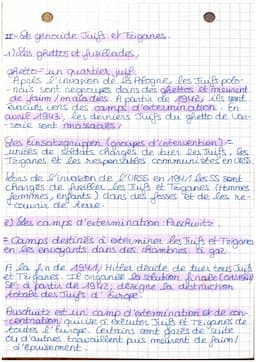 II- Le génocide Juifs et Tziganes.
1) Les ghettos et fusillades.
ghetto = un quartier juif.
Après l'invasion de la Pologne, les Juifs polo-
nais sont regroupés dans des ghettos et meurent
de faim / maladies. A partir de 1942, ils sont
évacués vers des camps d'extermination. En
avril 1943, les derniers Juifs du ghetto de Var-
sovie sont massacrés.
Les Einsatzgruppen (groupes d'intervention) =
unités de soldats chargés de tuer les Juifs, les
Tziganes et les responsables communistes en URSS.
Lors de l'invasion de l'URSS en 1941 les SS sont
chargés de fusiller les Juifs et Tziganes (hommes
femmes, enfants) dans des fosses et de les re-
couvrir de terre.
2) Les camps d'extermination : Auschwitz
= Camps destinés à exterminer les Juifs et Tziganes
en les envoyants dans des chambres à gaz.
A la fin de 1941, Hitler décide de tuer tous Juifs
et Tziganes. Il organise la solution finale
à partir de 1942, désigne la destruction
totale des Juifs d'Europe.
Auschwitz est un camp d'extermination et de con-
centration, qui vise à exterminer Juifs et Tziganes de
toutes l'Europe. Certains sont gazés de suite
ou d'autres travaillent puis meurent de faim /
d'épuisement.